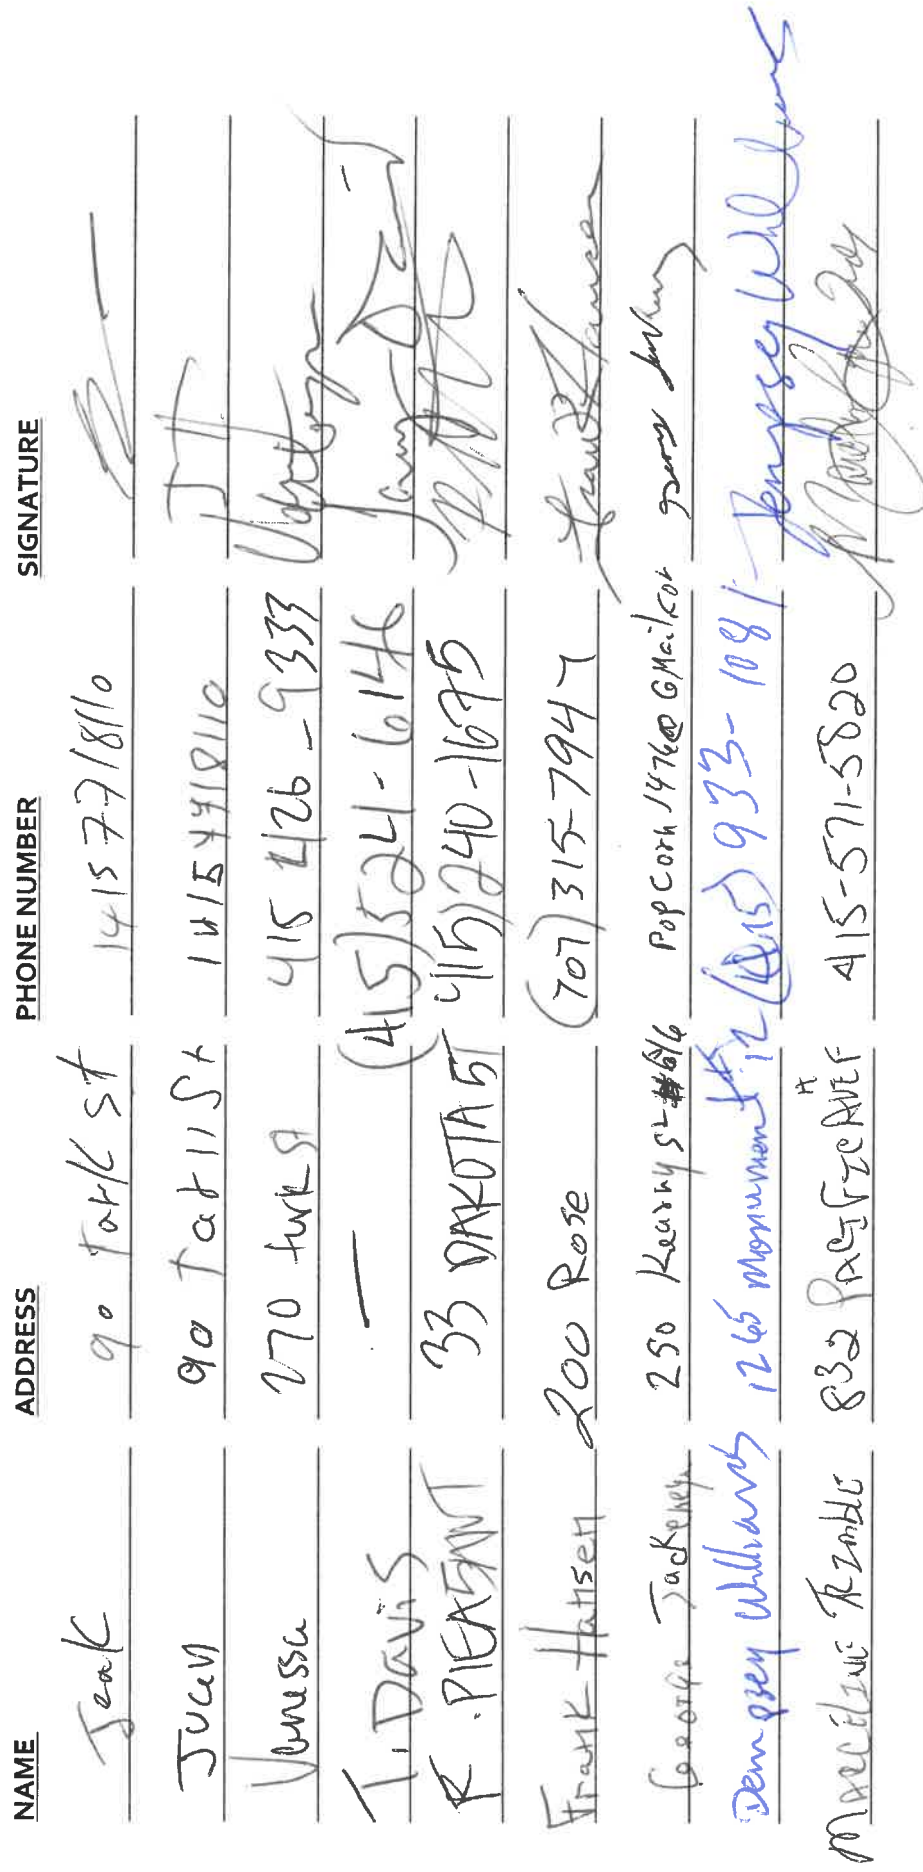 NAME ADDRESS PHONE NUMBER SIGNATURE
Jeak 90 Tark St 14157718110
Juan 90 Tarll St 1415771810
Venessa 270 turk St 415 426-9333
T. Davis — (415) 524-6146
K. PIEASANT 33 DAKOTA ST 415) 240-1695
Frank Hansen 200 Rose (707) 315-7947
George Jackeney 250 Kearny St #616 PopCorn1476@GMailcor
Dempsey Williams 1265 Monument #12 (415) 933-1081 Dempsey Williams
MARCELINE TRIMBLE 832 PACIFIC AVE 415-571-5820